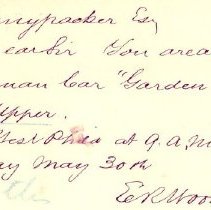 nnypacker Esq
ear Sir You are a
man Car "Garden
upper.
West Phila at 9 A.M
ay May 30th
E R Woo